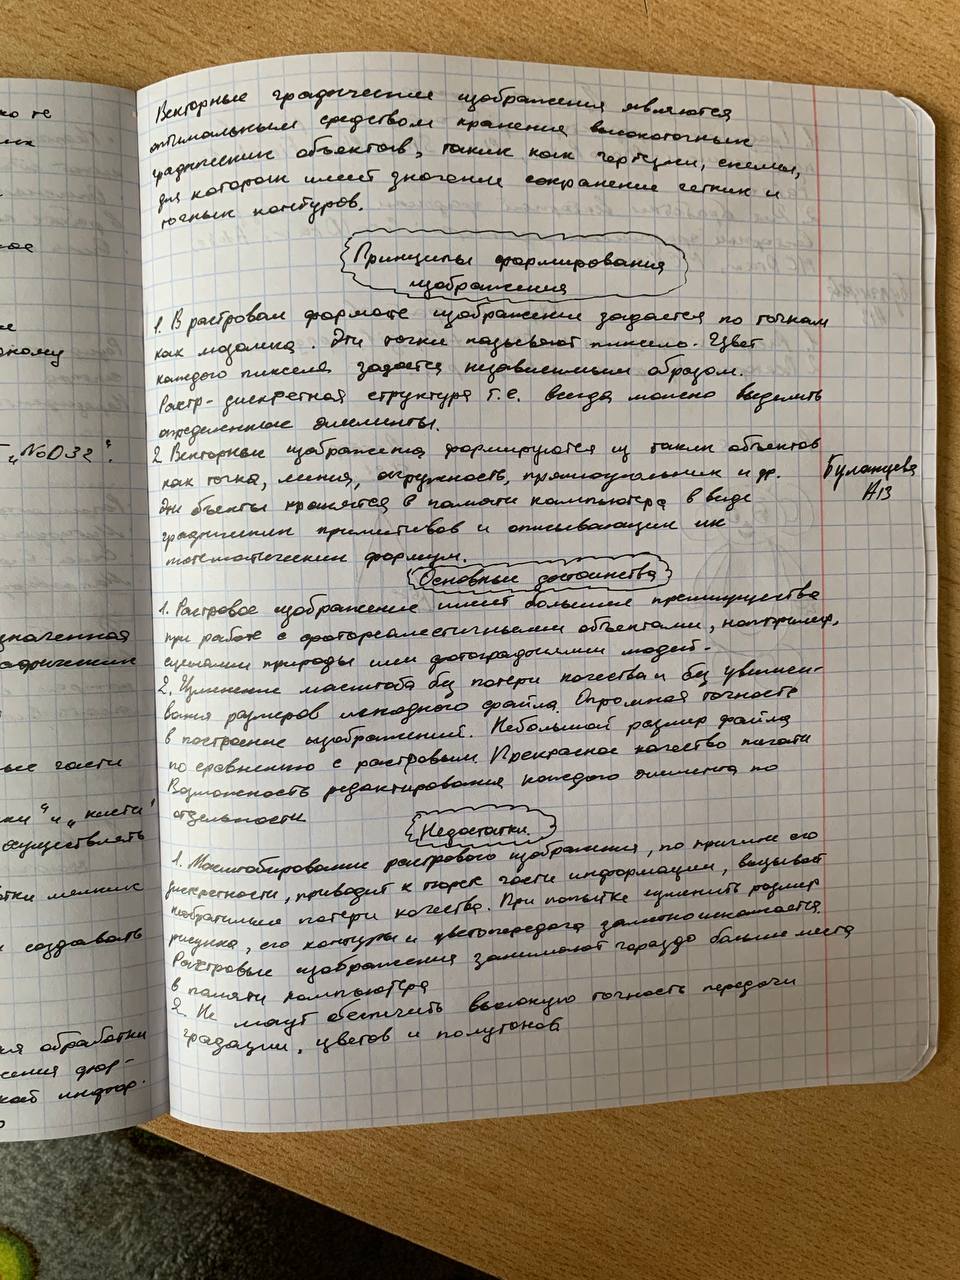 Векторные графические изображения являются
оптимальным средством хранения высокоточных
графических объектов, таких как чертежи, схемы,
для которых имеет значение сохранение четких и
точных контуров.
Принципы формирования
изображения
1. В растровом формате изображение задается по точкам
как мозаика. Эти точки называют пиксель. Цвет
каждого пикселя задается независимым образом.
Растр - дискретная структура т.е. всегда можно выделить
определенные элементы.
2 Векторные изображения формируются из таких объектов
как точка, линия, окружность, прямоугольник и др.
Эти объекты хранятся в памяти компьютера в виде
графических примитивов и описывающих их
математических формул.
Буланцева
А13
Основные достоинства
1. Растровое изображение имеет большие преимущества
при работе с фотореалестичными объектами, например,
сценами природы или фотографиями людей.
2. Изменение масштаба без потери качества и без увеличе-
вания размеров исходного файла. Огромная точность
в построение изображений. Небольшой размер файла
по сравнению с растровым Прекрасное качество печати
Возможность редактирования каждого элемента по
отдельности
Недостатки
1. Масштабирование растрового изображения, по причине его
дискретности, приводит к потере части информации, вызывает
необратимые потери качества. При попытке изменить размер
рисунка, его контуры и цветопередача заметно искажается.
Растровые изображения занимают гораздо больше места
в памяти компьютера
2. Не могут обеспечить высокую точность передачи
градации, цветов и полутонов
ко те
ое
ному
"NoD32".
значенная
графических
ные части
"кисти"
осуществлять
создавать
обработки